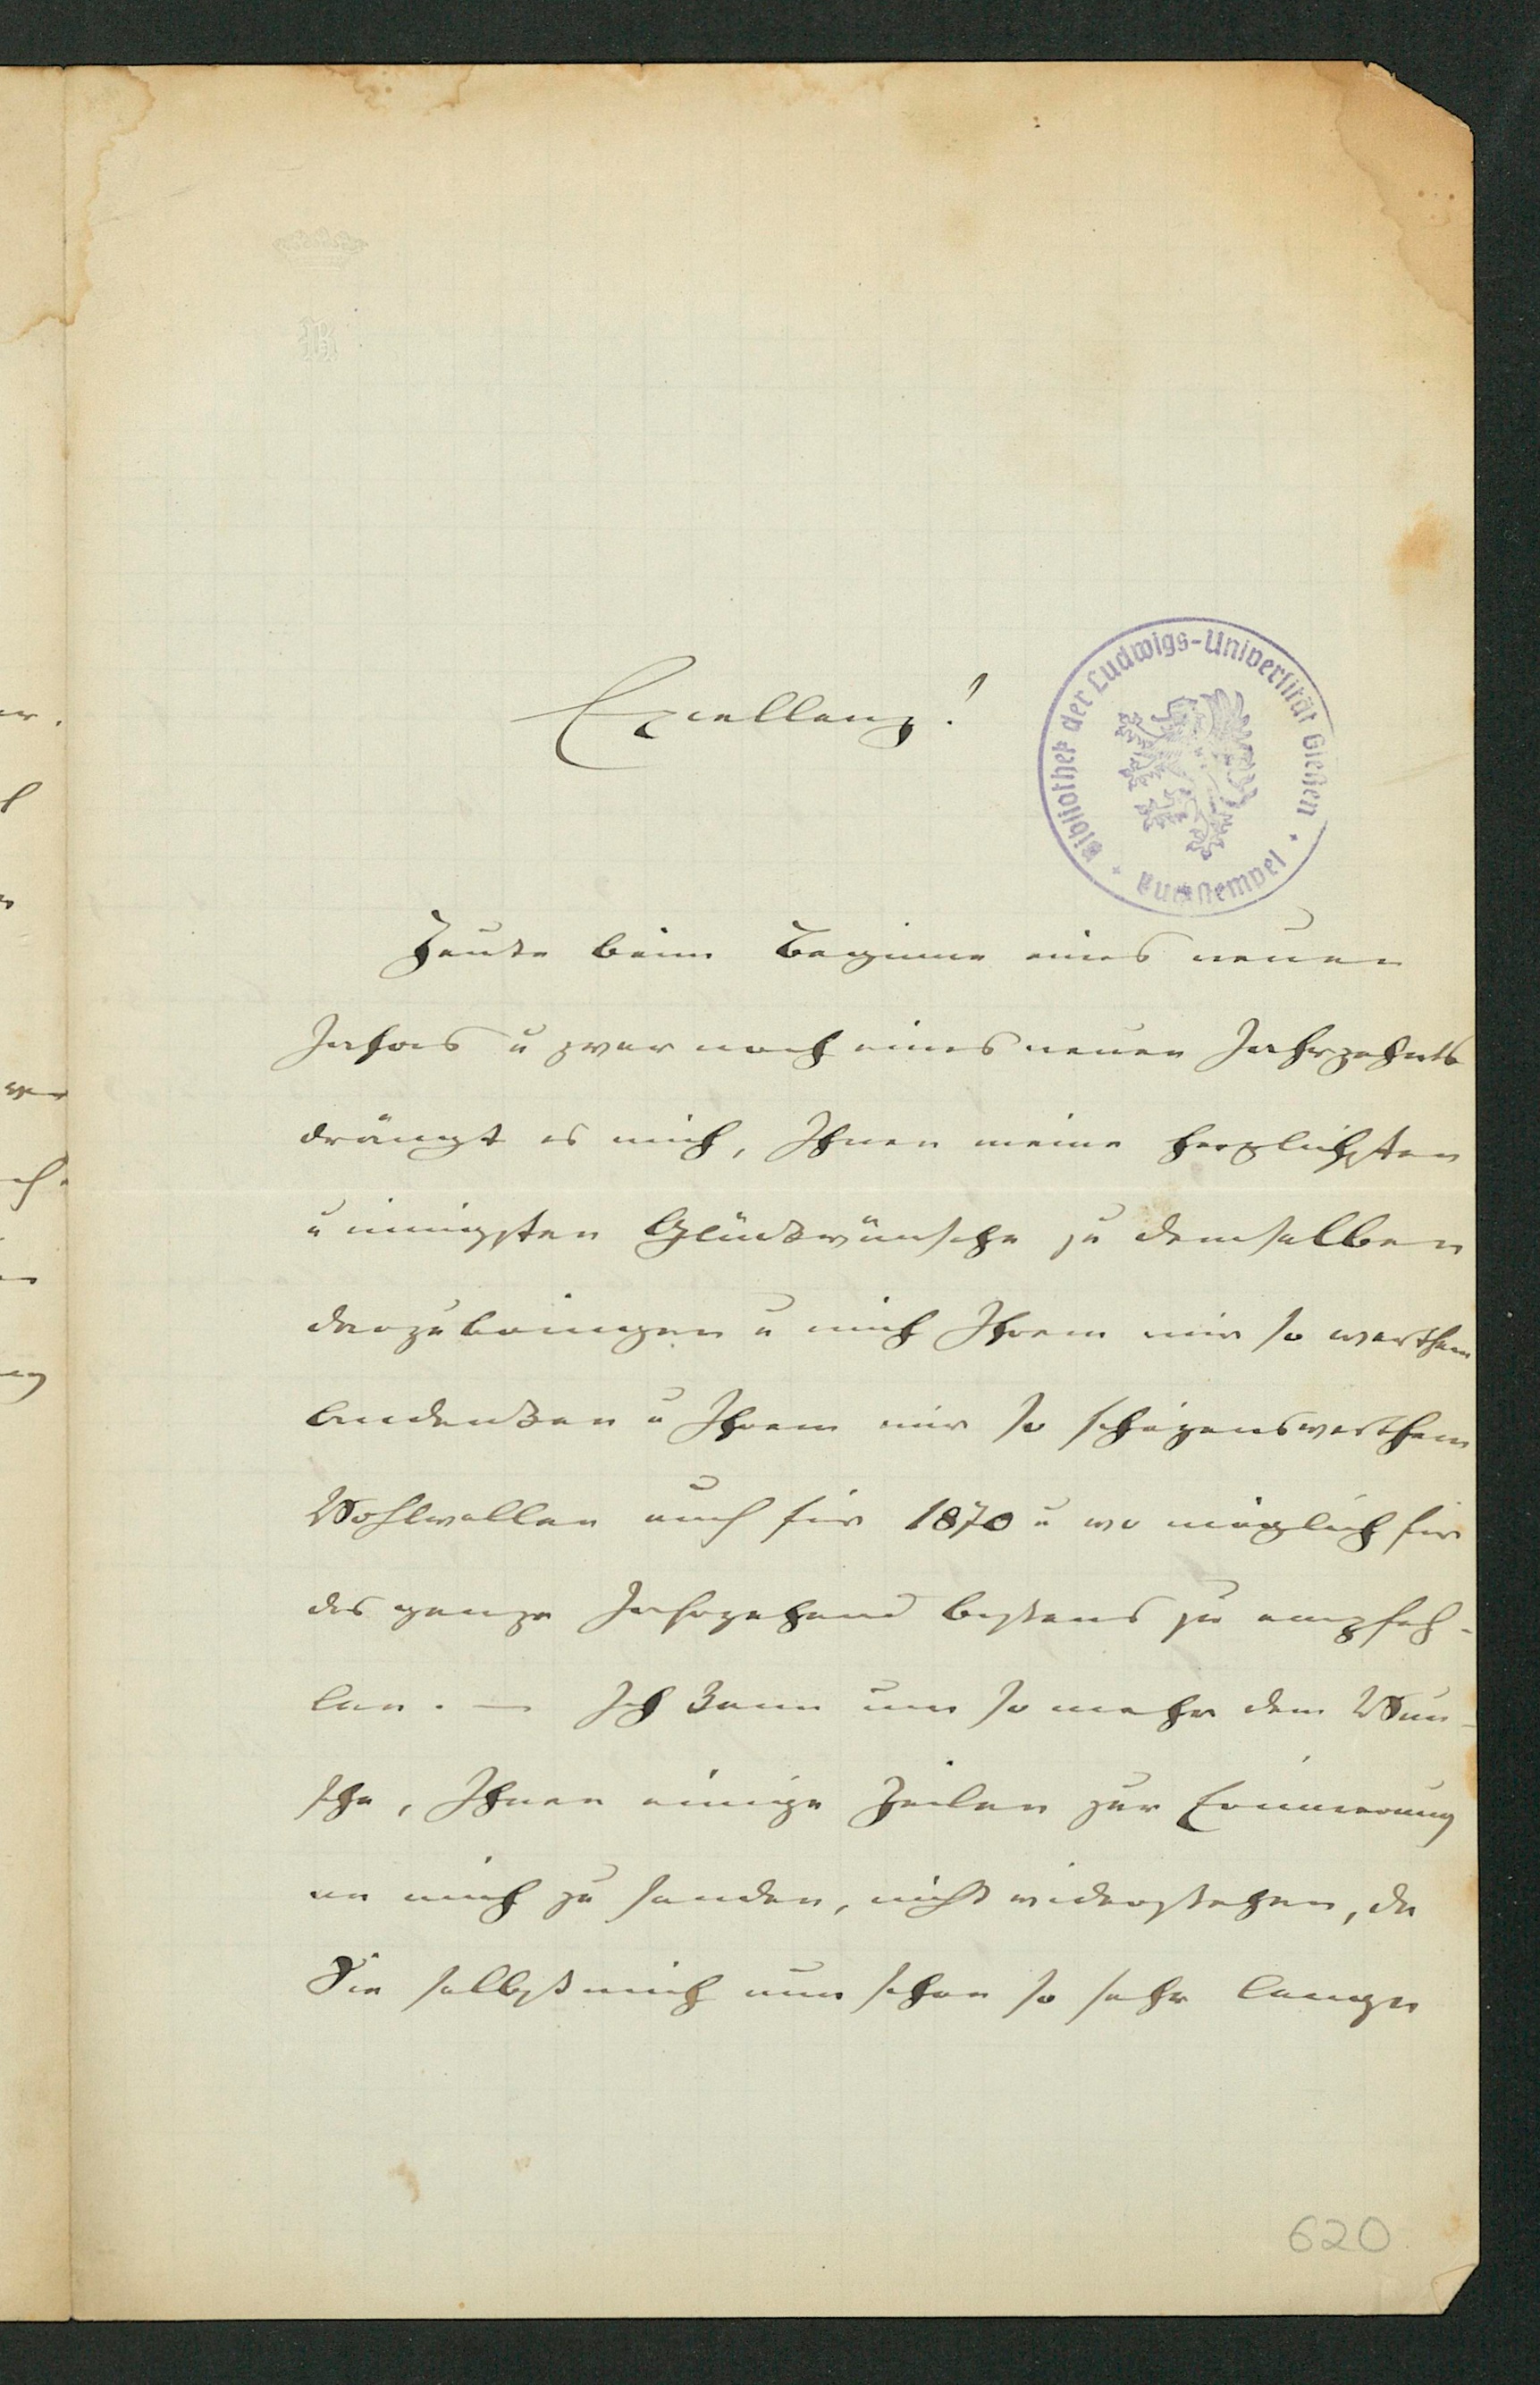 Excellenz!
Bibliothek der Ludwigs-Universität Gießen
Buchstempel
Heute beim Beginne eines neuen
Jahres u zwar noch eines neuen Jahrzehnts
drängt es mich, Ihnen meine herzlichsten
u innigsten Glückwünsche zu demselben
darzubringen u mich Ihrem mir so werthen
Andenken u Ihrem mir so schäzenswerthem
Wohlwollen auch für 1870 u wo möglich für
das ganze Jahrzehend bestens zu empfeh-
len. — Ich kann um so mehr dem Wun-
sche, Ihnen einige Zeilen zur Erinnerung
an mich zu senden, nicht widerstehen, da
Sie selbst mich nun schon so sehr lange
620